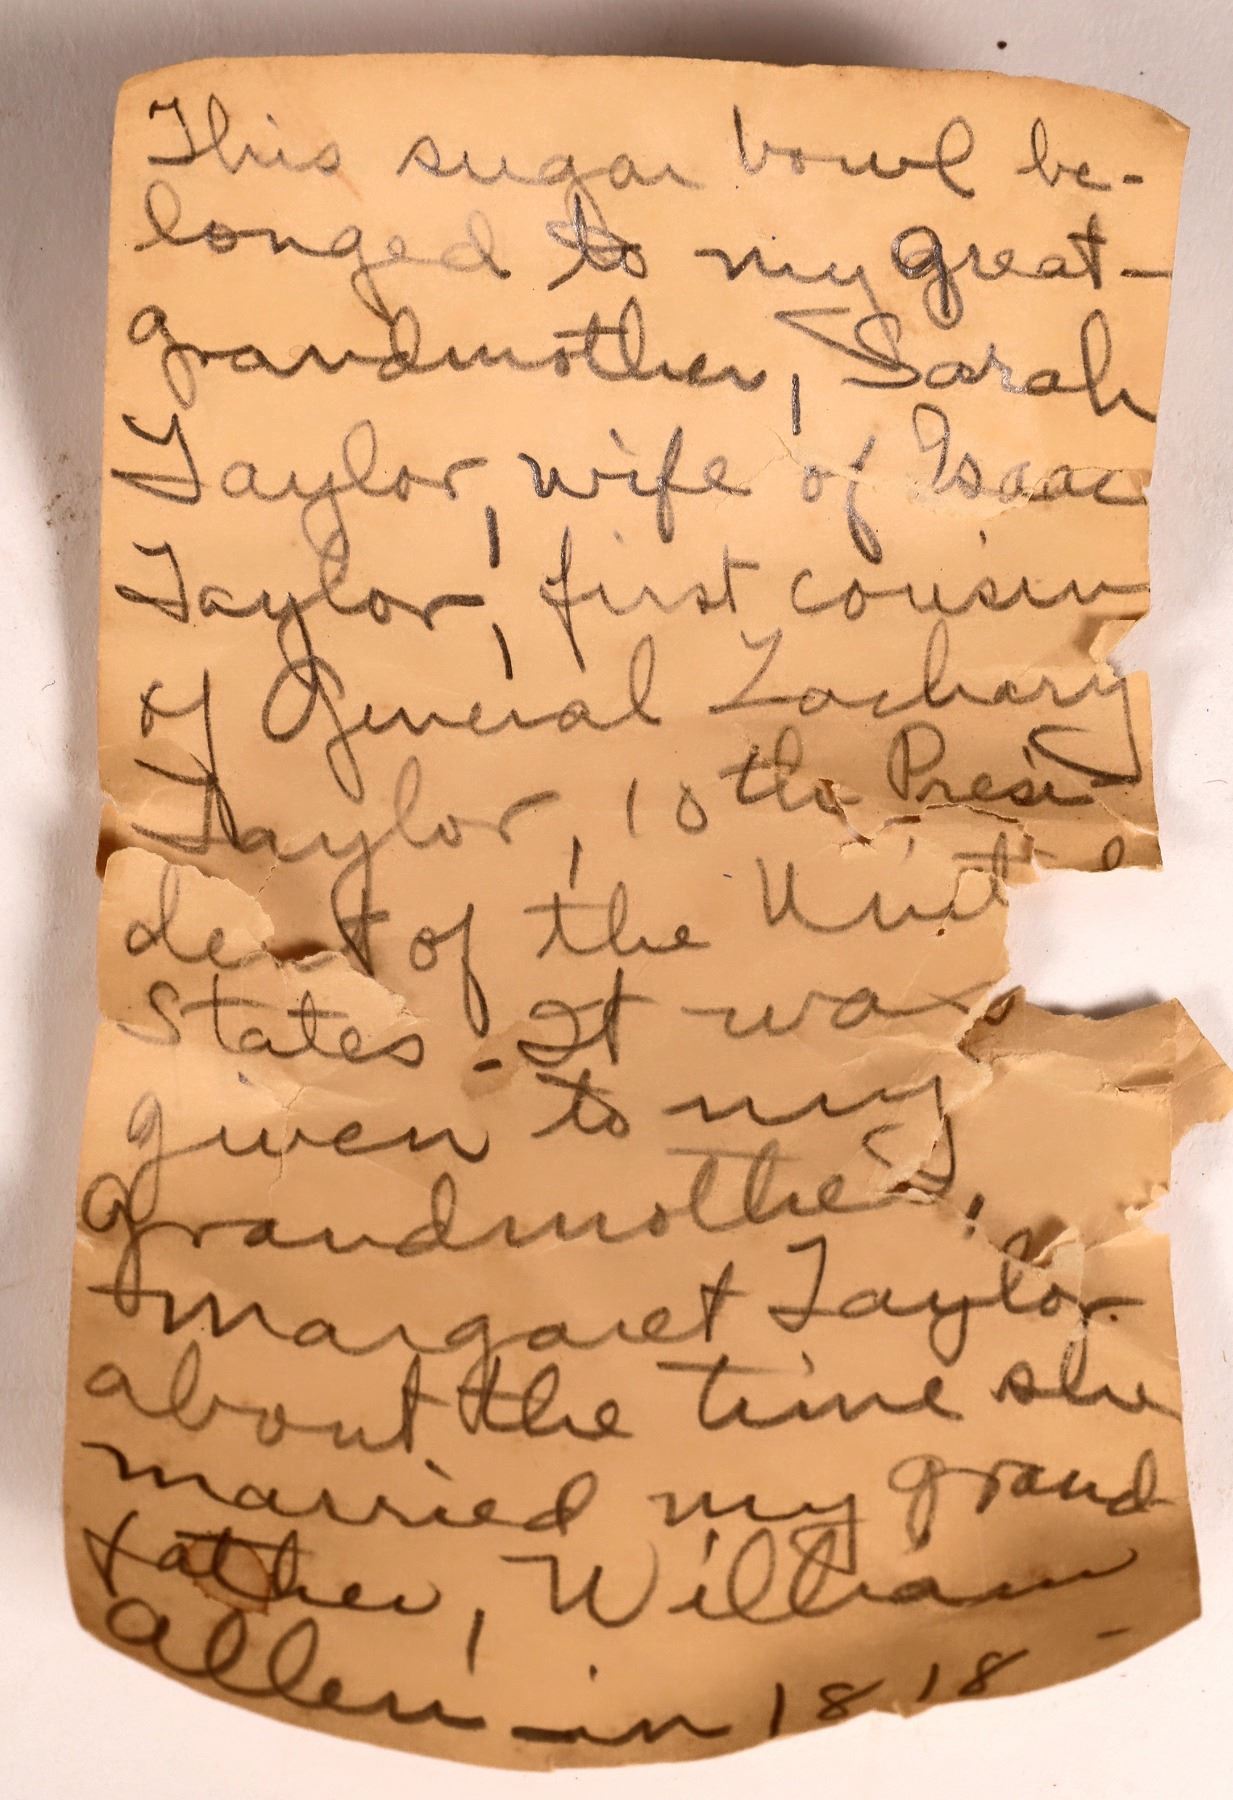 This sugar bowl be-
longed to my great-
grandmother, Sarah
Taylor, wife of Isaac
Taylor, first cousin
of General Zachary
Taylor, 10 the Presi-
dent of the Unit d
States - It was
given to my
grandmother,
Margaret Taylor
about the time she
married my grand-
father, William
Allen - in 1818 -